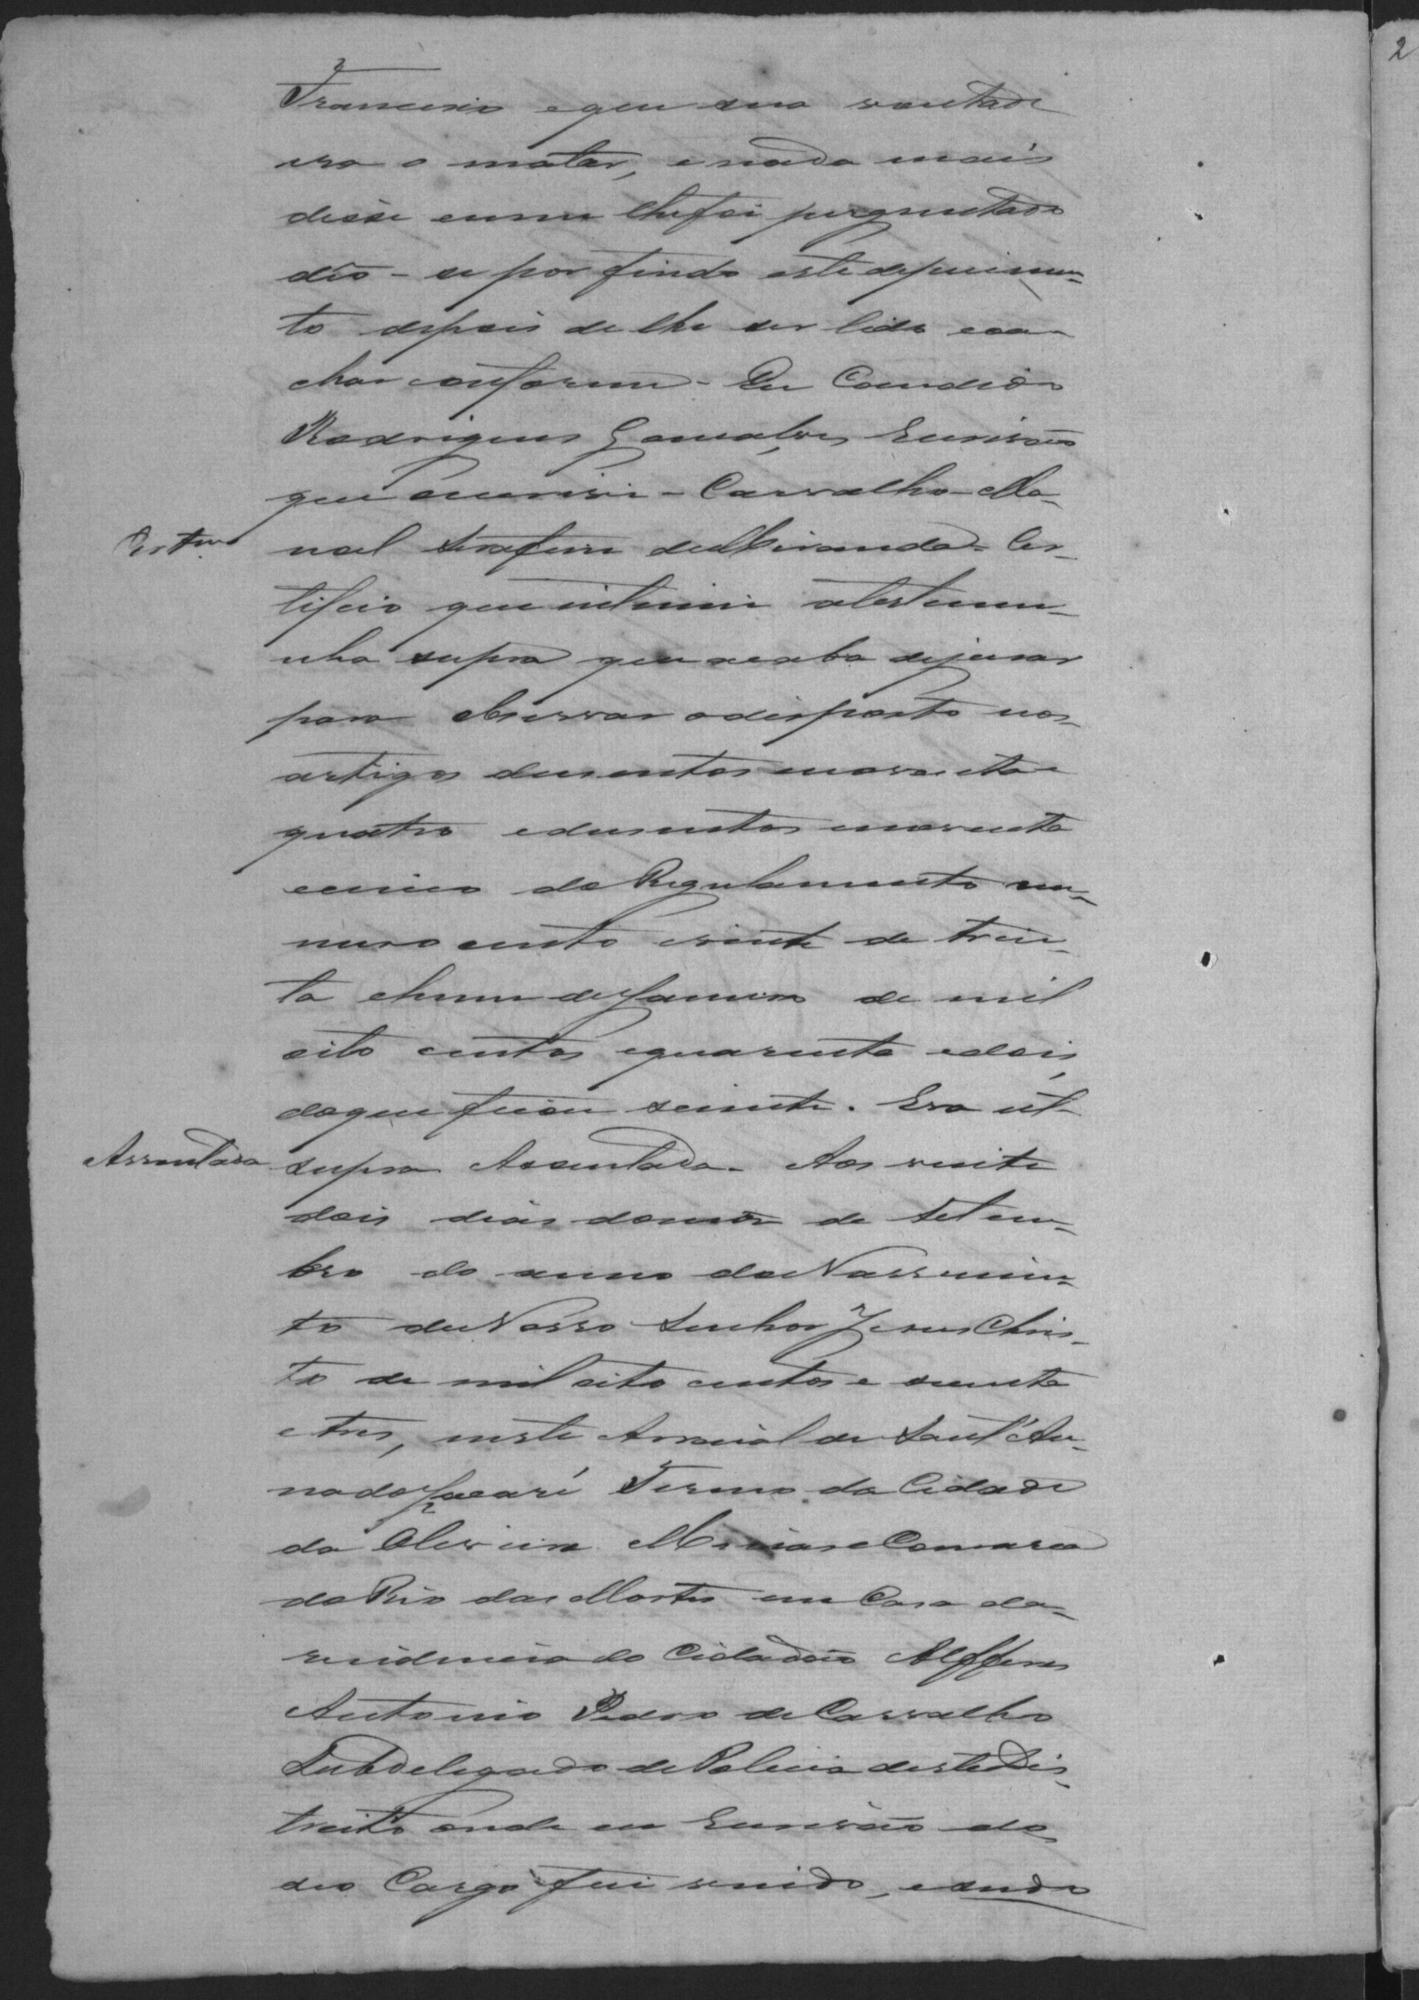 2
Francisco e que sua vontade
era o matar, e nada mais
disse e nem lhe foi perguntado
deo-se por findo este depuimen-
to depois de lhe ser lido e oa-
char conforme - Eu Candido
Rodrigues Gonsalves Escrivão
que escrivi - Carvalho - Ma-
Certam noel Serafim de Miranda - Cer-
tifico que intimei a testemu-
nha supra que acaba de jurar
para observar o disposto nos
artigos dusentos noventa e
quatro e dusentos noventa
e cinco do Regulamento nu-
mero cento e vinte de trin-
ta e hum de Janeiro de mil
oito centos e quarenta e dois,
do que ficou sciente. Era ut-
Assentada supra Assentada - Aos vinte
dois dias do mez de Setem-
bro do anno do Nascimen-
to de Nosso Senhor Jesus Chris-
to de mil oito centos e
e tres, neste Arraial de Sant'An-
na do Jacaré Termo da Cidade
da Oliveira Minas e Comarca
do Rio das Mortes em Casa da
residencia do Cidadão Alfferes
Antonio Pedro de Carvalho
Subdelegado de Policia deste Dis-
tricto onde eu Escrivão do
seo Cargo fui vindo, e sendo